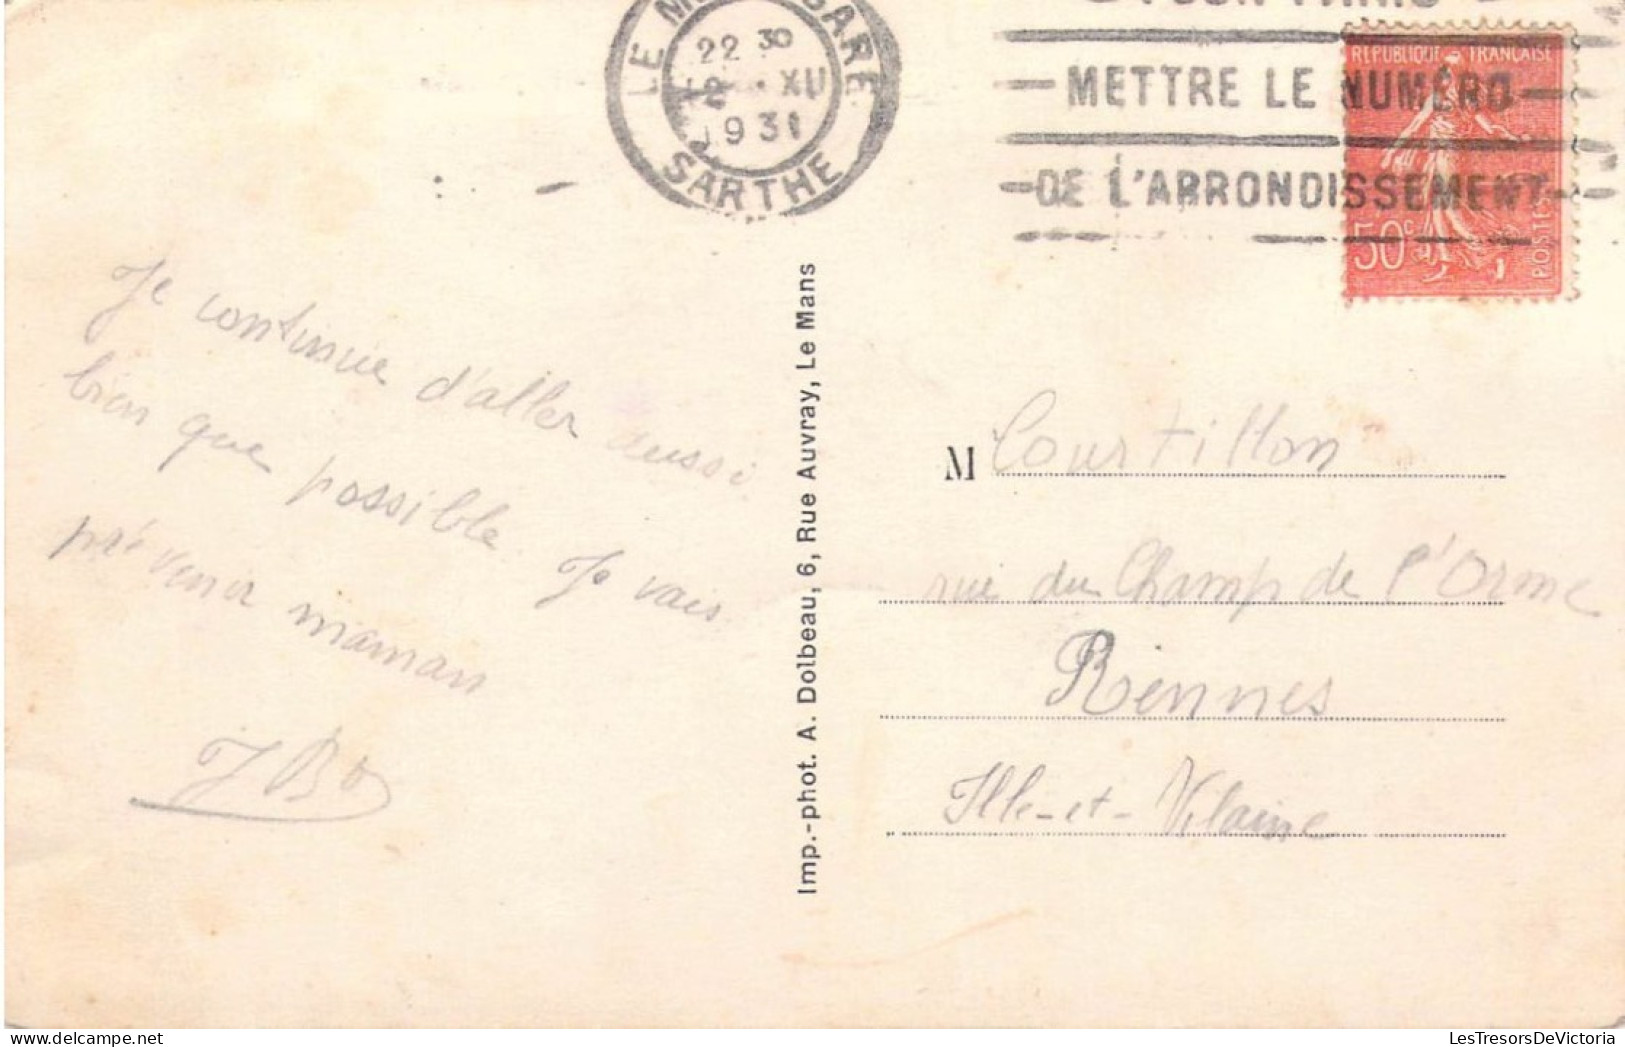 POUR PARIS
METTRE LE NUMÉRO
DE L'ARRONDISSEMENT
LE MANS GARE
22 30
XII
1931
SARTHE
REPUBLIQUE FRANÇAISE
50c
POSTES
Je continue d'aller aussi
bien que possible. Je vais
prévenir maman
Imp.-phot. A. Dolbeau, 6, Rue Auvray, Le Mans
M Courtillon
rue du Champ de l'Orme
Rennes
Ille-et-Vilaine
LesTresorsDeVictoria